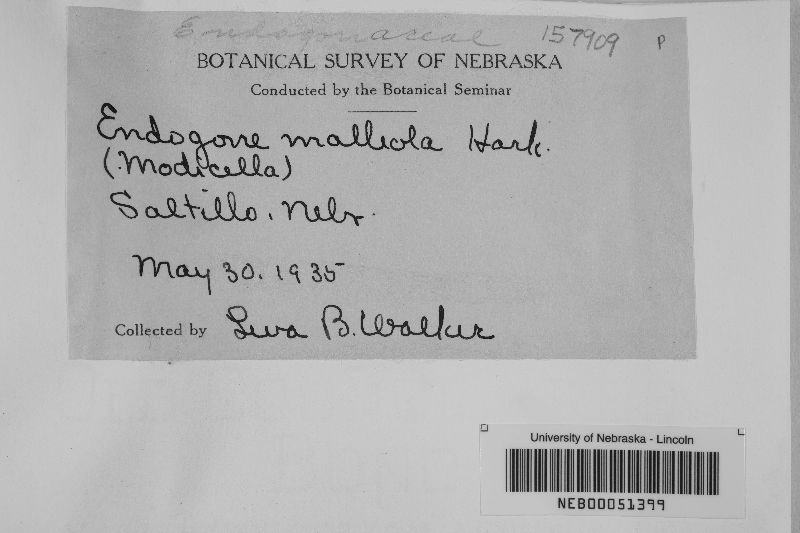 Endogonaceae 157909 P
BOTANICAL SURVEY OF NEBRASKA
Conducted by the Botanical Seminar
Endogone malleola Hark.
(Modicella)
Saltillo, Nebr.
May 30. 1935
Collected by Leva B. Walker
University of Nebraska - Lincoln
NEB00051399